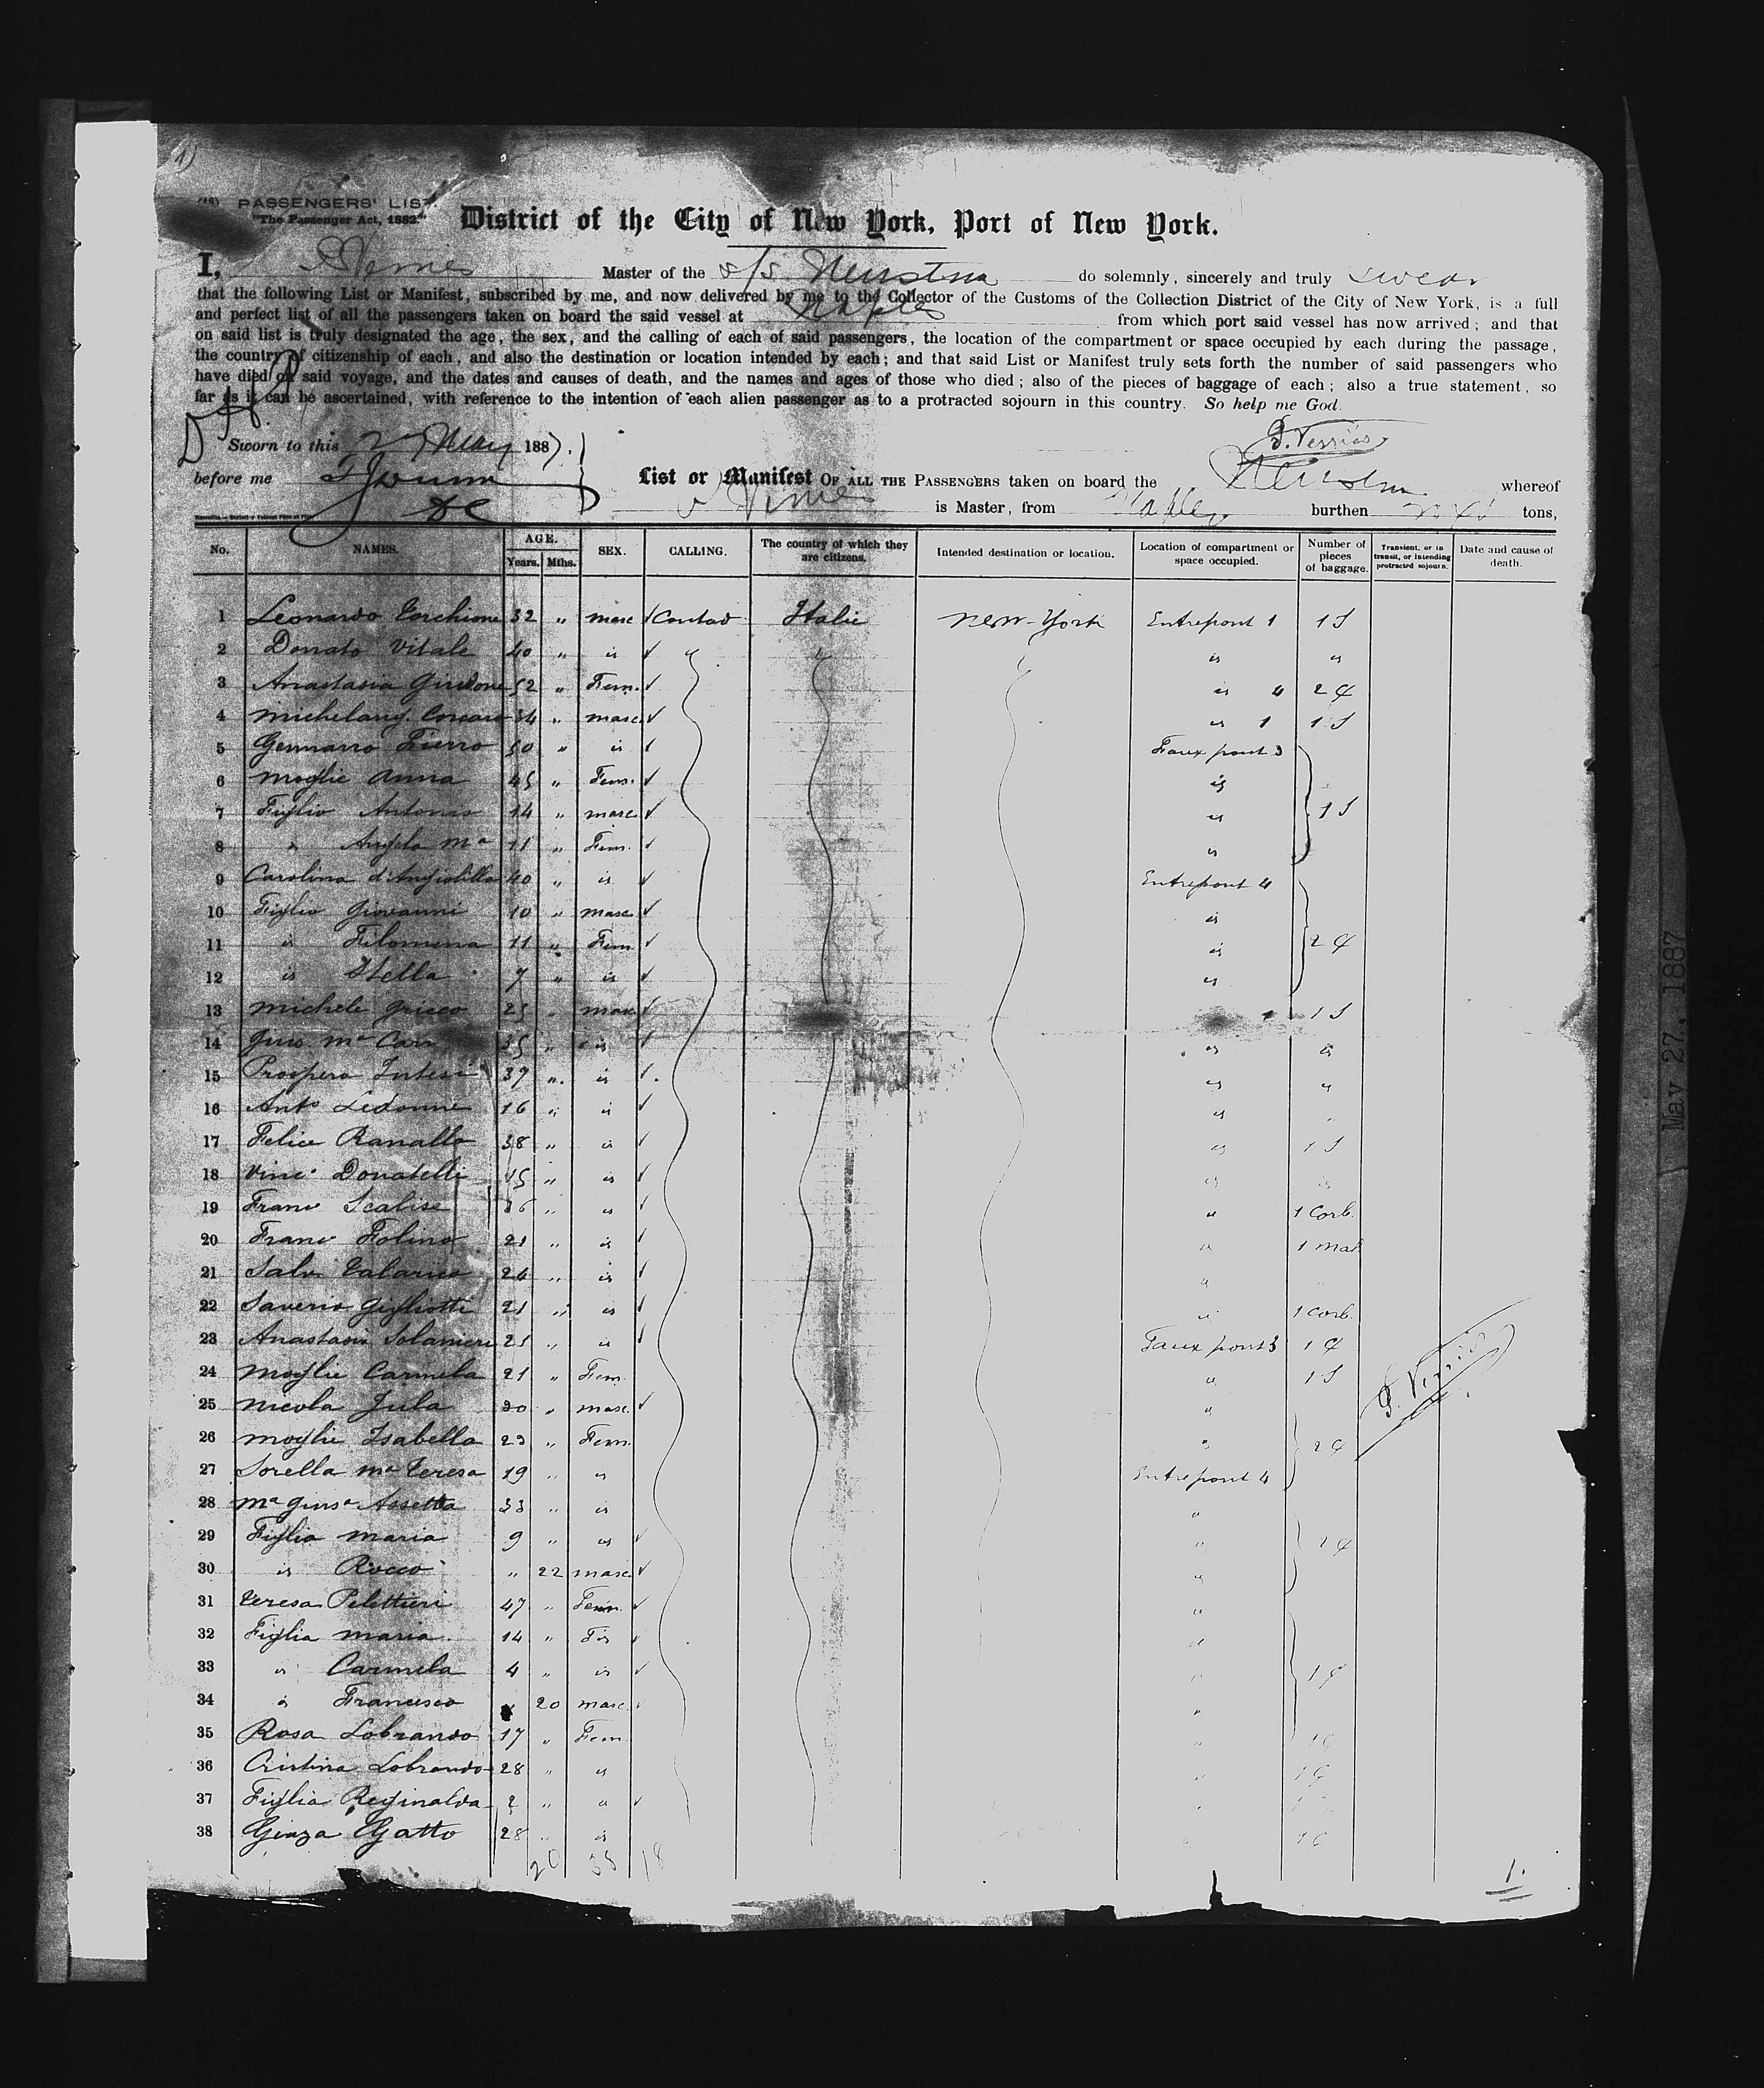 1)
PASSENGERS' LIST
"The Passenger Act, 1882."
District of the City of New York, Port of New York.
I, Master of the s/s Neustria do solemnly, sincerely and truly swear
that the following List or Manifest, subscribed by me, and now delivered by me to the Collector of the Customs of the Collection District of the City of New York, is a full
and perfect list of all the passengers taken on board the said vessel at Naples from which port said vessel has now arrived; and that
on said list is truly designated the age, the sex, and the calling of each of said passengers, the location of the compartment or space occupied by each during the passage,
the country of citizenship of each, and also the destination or location intended by each; and that said List or Manifest truly sets forth the number of said passengers who
have died on said voyage, and the dates and causes of death, and the names and ages of those who died; also of the pieces of baggage of each; also a true statement, so
far as it can be ascertained, with reference to the intention of each alien passenger as to a protracted sojourn in this country. So help me God.
Sworn to this 27 May 1887.
before me
List or Manifest OF ALL THE PASSENGERS taken on board the Neustria whereof
is Master, from Naples burthen tons,
No. NAMES. AGE. Years. Mths. SEX. CALLING. The country of which they are citizens. Intended destination or location. Location of compartment or space occupied. Number of pieces of baggage. Transient, or in transit, or intending protracted sojourn. Date and cause of death.
1 Leonardo Torchione 32 " masc Contad Italie New-York Entrepont 1 1 S
2 Donato Vitale 40 " is is "
3 Anastasia 52 " Fem. is 4 2 
4 Michelang. 34 " masc. is 1 1 S
5 Gennarro Fierro 50 " is Faux pont 3
6 Moglie Anna 45 " Fem. is
7 Figlio Antonio 14 " masc. is 1 S
8 " Angela Ma 11 " Fem. is
9 Carolina d'Angiolillo 40 " is Entrepont 4
10 Figlio Giovanni 10 " masc is
11 is Filomena 11 " Fem is 2
12 is Stella 7 " is is
13 Michele Grieco 25 " masc 1 S
14 Gius. Ma 35 " is is is
15 Prospero 37 " is is "
16 Anto Ledonne 16 " is is "
17 Felice Ranallo 38 " is is 1 S
18 Vinc. Donatelli 15 " is is is
19 Franc Scalise 36 " is " 1 Corb.
20 Franc Folino 21 " is " 1 Mal
21 Salv. Talarico 24 " is "
22 Saverio Gigliotti 21 " is " 1 Corb.
23 Anastasio 25 " is Faux pont 3 1
24 Moglie Carmela 21 " Fem. " 1 S
25 Nicola Jula 30 " masc. "
26 Moglie Isabella 23 " Fem. " 2
27 Sorella Ma Teresa 19 " is Entrepont 4
28 Ma Giusa Assetta 33 " is "
29 Figlia Maria 9 " is " 2
30 is Rocco " 22 masc. "
31 Teresa Pelettieri 47 " Fem. "
32 Figlia Maria 14 " is "
33 is Carmela 4 " is " 1
34 is Francesco 20 masc. "
35 Rosa Lobrando 17 " Fem. "
36 Cristina Lobrando 28 " is "
37 Figlia Reginalda 2 " "
38 Gatto 28 " is
20 38 18
1.
May 27, 1887